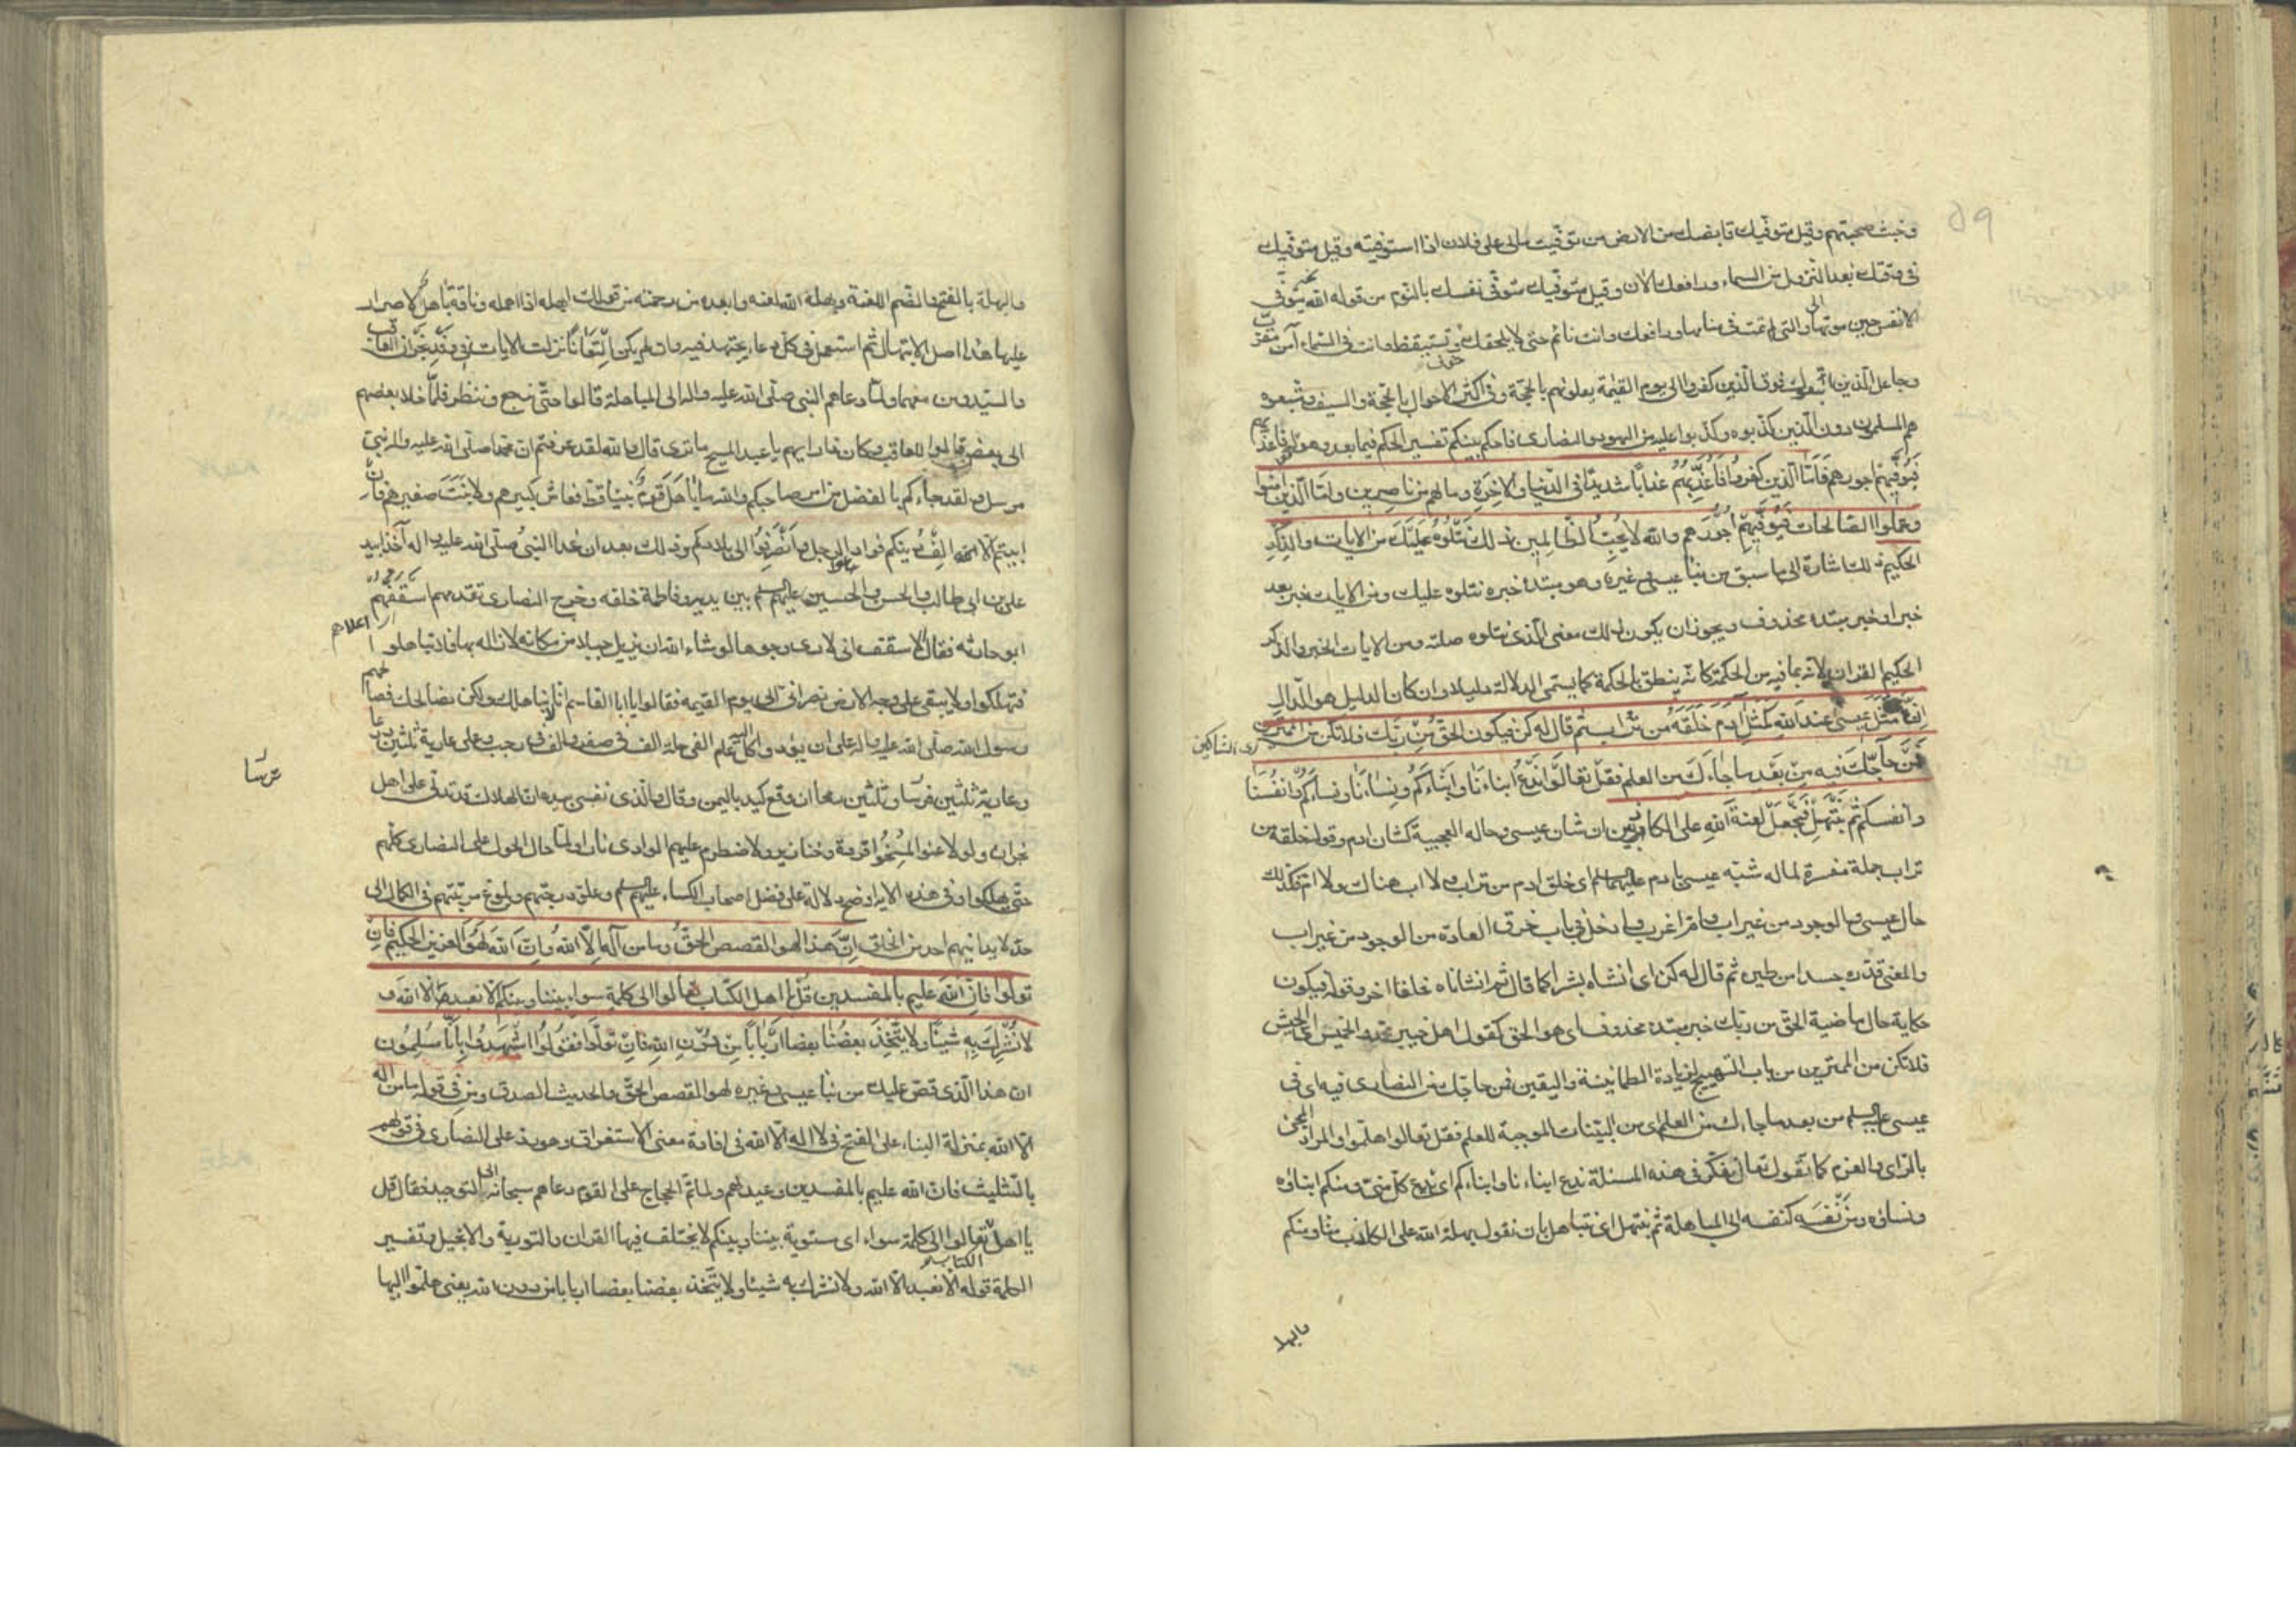 وخبث صحبتهم وقيل متوفيك قابضك من الارض من توفيت مالى على فلان اذا استوفيته وقيل متوفيك
فى وقتك بعد النزول من السماء ورافعك الان وقيل متوفيك متوفى نفسك بالنوم من قوله الله يتوفى
الانفس حين موتها والتى لم تمت فى منامها ورافعك وانت نائم حتى لا يلحقك خوف وتستيقظ وانت فى السماء آمن مقرب
وجاعل الذين اتبعوك فوق الذين كفروا الى يوم القيمة يعلونهم بالحجة وفى اكثر الاحوال بالحجة والسيف ومتبعوه
هم المسلمون دون الذين كذبوه وكذبوا عليه من اليهود والنصارى فاحكم بينكم تفسير الحكم فيما بعد وهو قوله فاعذبهم
فنوفيهم اجورهم فَاَمَّا الذين كفروا فَاُعَذِّبُهُمْ عذابًا شديدًا فى الدنيا والاخِرَةِ وما لهم من ناصِرين وامّا الذين امنوا
وعملوا الصالحات فَيُوَفِّيهِمْ اُجُورَهم والله لا يُحِبُّ الظَّالِمين ذلك نَتْلُوهُ عَلَيْكَ من الايات والذِّكْرِ
الحكيم ذلك اشارة الى ما سبق من نبأ عيسى وغيره وهو مبتدء خبره نتلوه عليك ومن الايات خبر بعد
خبر او خبر مبتدء محذوف ويجوز ان يكون ذلك معنى الذى نتلوه صلته ومن الايات الخبر والذكر
الحكيم القران لانه بما فيه من الحكمة كانه ينطق بالحكمة كما يسمى الدلالة دليلا وان كان الدليل هو الدال
اِنَّ مَثَلَ عيسىَ عند الله كَمَثَلِ ادَمَ خَلَقَهُ من تُرابٍ ثم قال له كن فيكون الحق مِنْ رَبِّك فلا تكن من الممترين
اى الشاكين
فَمَنْ حاجَّكَ فيه مِنْ بَعْدِ ما جاءَكَ من العلم فقُلْ تعالَوْا نَدْعُ ابناءَنا وابناءَكُمْ ونِساءَنا ونساءَكُمْ وانفُسَنَا
وانفسكم ثم نَبْتَهِلْ فَنَجْعَلْ لعنةَ اللهِ على الكاذبين ان شان عيسى وحاله العجيبة كشان ادم وقوله خلقه من
تراب جملة مفسرة لما له شبه عيسى بادم عليهما السلم اى خلق ادم من تراب ولا اب هناك ولا ام فكذلك
حال عيسى والوجود من غير اب وام اغرب وادخل فى باب خرق العادة من الوجود من غير اب
والمعنى قدره جسدا من طين ثم قال له كن اى انشاه بشرا كما قال ثم انشاناه خلقا اخر وقوله فيكون
حكاية حال ماضية الحق من ربك خبر مبتدء محذوف اى هو الحق كقول اهل خيبر محمد والخميس اى الجيش
فلا تكن من الممترين من باب التهييج لزيادة الطمانينة واليقين فمن حاجك من النصارى فيه اى فى
عيسى عليه السلم من بعد ما جاءك من العلم اى من البينات الموجبة للعلم فقل تعالوا هلموا والمراد المجئ
بالراى والعزم كما تقول تعال نفكر فى هذه المسئلة ندع ابناءنا وابناءكم اى ندع كل منى ومنكم ابناؤه
ونساؤه ومن نَفْسَه كنفسه الى المباهلة ثم نبتهل اى نتباهل بان نقول بهلة الله على الكاذب منا ومنكم
والبهلة
والبهلة بالفتح والضم اللعنة وبهله الله لعنه وابعده من رحمته من قولك ابهله اذا اهمله وناقة باهل لا صرار
عليها هذا اصل الابتهال ثم استعمل فى كل دعاء يجتهد فيه وان لم يكن اِلْتِعَانًا نزلت الايات فى وَفْدِ نَجْرَان العاقب
والسيد ومن معهما ولما دعاهم النبى صلى الله عليه واله الى المباهلة قالوا حتى نرجع وننظر فلما خلا بعضهم
الى بعض قالوا للعاقب وكان ذا رايهم يا عبد المسيح ما ترى قال والله لقد عرفتم ان محمدا صلى الله عليه واله نبى
مرسل ولقد جاءكم بالفصل من امر صاحبكم والله ما بَاهَلَ قَوْمٌ نبيا قط فعاش كبيرهم ولا نَبَتَ صغيرهم فان
ابيتم الا اِلْفَ دينكم فوادعوا الرجل وانْصَرِفُوا الى بلادكم وذلك بعد ان غدا النبىُّ صلى الله عليه واله آخذا بيد
على بن ابى طالب والحسن والحسين عليهم السلم بين يديه وفاطمة خلفه وخرج النصارى تقدمهم اسقفهم
اى اعلاهم
ابو حارثه فقال الاسقف انى لارى وجوها لو شاء الله ان يزيل جبلا من مكانه لازاله بها فلا تباهلوا
فتهلكوا ولا يبقى على وجه الارض نصرانى الى يوم القيمه فقالوا يا ابا القاسم انا لا نباهلك ولكن نصالحك فصالحهم
رسول الله صلى الله عليه واله على ان يؤدوا اليه كل عام الفى حلة الف فى صفر والف فى رجب وعلى عارية ثلثين درعا
وعارية ثلثين فرسا وثلثين رمحا ان وقع كيد باليمن وقال والذى نفسى بيده ان الهلاك قد تدلى على اهل
فرسا
نجران ولو لاعنوا لَمُسِخُوا قردة وخنازير ولاضطرم عليهم الوادى نارا ولما حال الحول على النصارى كلهم
حتى يهلكوا وفى هذه الاية اوضح دلالة على فضل اصحاب الكساء عليهم السلم وعلو درجتهم وبلوغ مرتبتهم فى الكمال الى
حد لا يدانيهم احد من الخلق اِنَّ هذا لهو القصص الحقُّ وما من اله اِلّا اللهُ واِنَّ اللهَ لَهُوَ العزيز الحكيم فان
تولوا فان الله عليم بالمفسدين قل يا اهل الكتاب تعالوا الى كلمة سواء بيننا وبينكم الا نعبد الا الله و
لا نُشْرِكَ بِه شيئًا ولا يَتَّخِذَ بعضُنا بعضا اَرْبَابًا مِنْ دُونِ اللهِ فَاِنْ تولَّوا فقُولُوا اشْهَدُوا بِاَنَّا مُسْلِمُون
ان هذا الذى قص عليك من نبأ عيسى وغيره لهو القصص الحق والحديث الصدق ومن فى قوله ما من اله
الا الله بمنزلة البناء على الفتح فى لا اله الا الله فى افادة معنى الاستغراق وهو رد على النصارى فى قولهم
بالتثليث فان الله عليم بالمفسدين وعيد لهم ولما تم الحجاج على القوم دعاهم سبحانه الى التوحيد فقال قل
يا اهل الكتاب تعالوا الى كلمة سواء اى مستوية بيننا وبينكم لا يختلف فيها القران والتورية والانجيل وتفسير
الكلمة قوله الا نعبد الا الله ولا نشرك به شيئا ولا يتخذ بعضنا بعضا اربابا من دون الله يعنى هلموا اليها